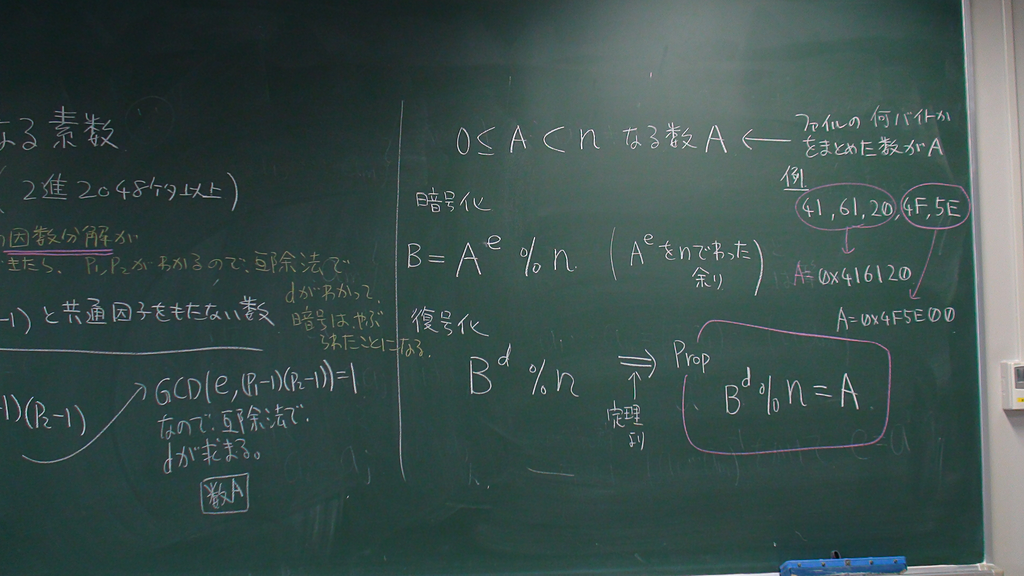 なる素数
(2進2048ケタ以上)
因数分解が
きたら、P₁,P₂がわかるので、互除法で
dがわかって、
暗号は、やぶ
られたことになる。
-1)と共通因子をもたない数
-1)(P₂-1)
GCD(e,(P₁-1)(P₂-1))=1
なので、互除法で、
dが求まる。
数A
0≤A<n なる数A ←
ファイルの何バイトか
をまとめた数がA
例
41,61,20,4F,5E
A=0x416120
A=0x4F5E00
暗号化
B=A^e %n (A^eをnでわった
余り)
復号化
B^d %n ⇒
定理
より
Prop
B^d%n=A